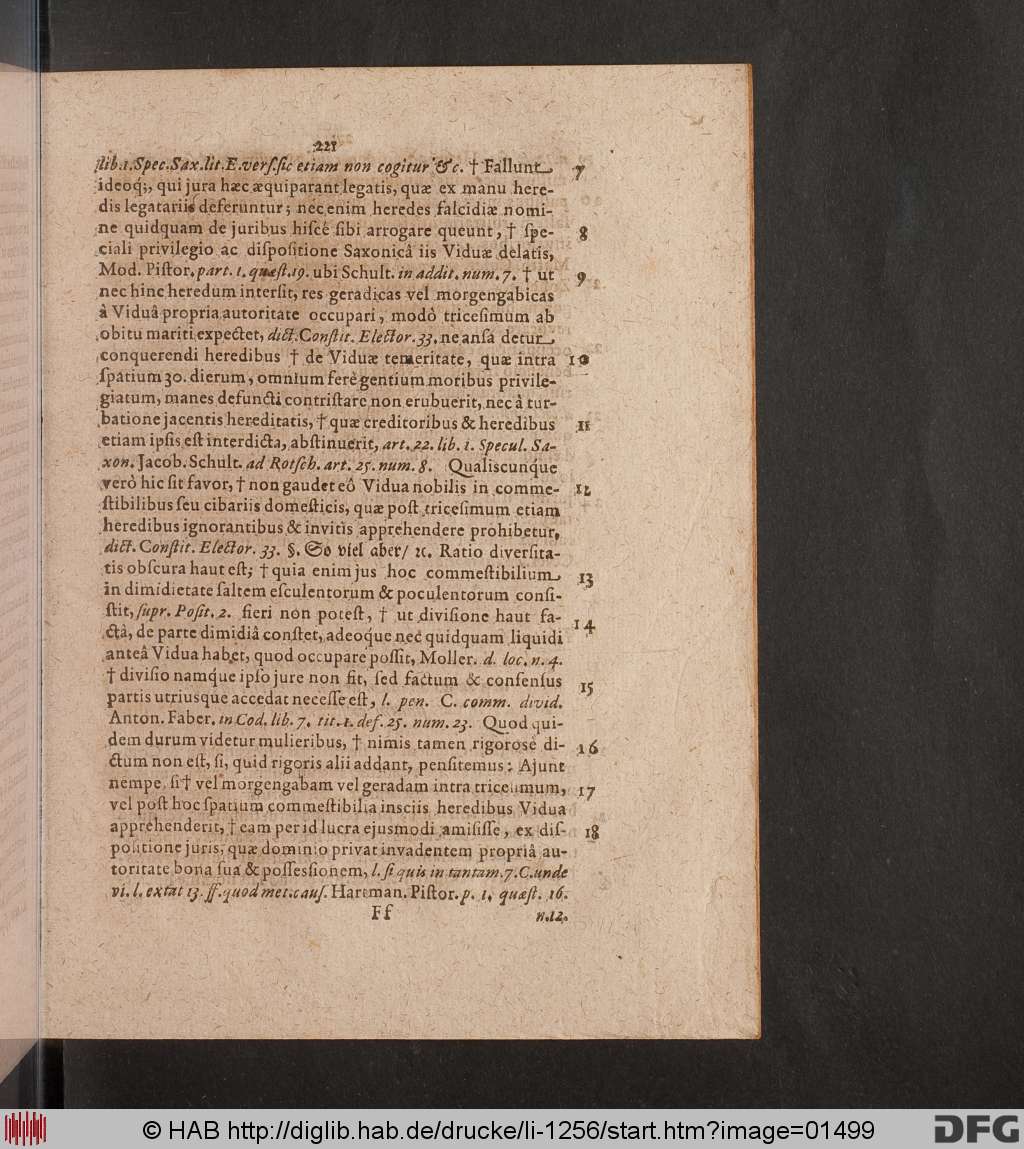 221
lib.1.Spec.Sax.lit.E.verſ.ſic etiam non cogitur &c. † Fallunt 7
ideoq;, qui jura hæc æquiparant legatis, quæ ex manu here-
dis legatariis deferuntur; nec enim heredes falcidiæ nomi-
ne quidquam de juribus hiſce ſibi arrogare queunt, † ſpe- 8
ciali privilegio ac diſpoſitione Saxonicâ iis Viduæ delatis,
Mod. Piſtor. part. 1. quæſt. 19. ubi Schult. in addit. num. 7. † ut 9
nec hinc heredum interſit, res geradicas vel morgengabicas
â Viduâ propria autoritate occupari, modò triceſimum ab
obitu mariti expectet, dict. Conſtit. Elector. 33. ne anſa detur
conquerendi heredibus † de Viduæ temeritate, quæ intra 10
ſpatium 30. dierum, omnium ferè gentium moribus privile-
giatum, manes defuncti contriſtare non erubuerit, nec à tur-
batione jacentis hereditatis, † quæ creditoribus & heredibus 11
etiam ipſis eſt interdicta, abſtinuerit, art. 22. lib. 1. Specul. Sa-
xon. Jacob. Schult. ad Rotſch. art. 25. num. 8. Qualiscunque
verò hic ſit favor, † non gaudet eô Vidua nobilis in comme- 12
ſtibilibus ſeu cibariis domeſticis, quæ poſt triceſimum etiam
heredibus ignorantibus & invitis apprehendere prohibetur,
dict. Conſtit. Elector. 33. §. So viel aber/ ꝛc. Ratio diverſita-
tis obſcura haut eſt; † quia enim jus hoc commeſtibilium 13
in dimidietate ſaltem eſculentorum & poculentorum conſi-
ſtit, ſupr. Poſit. 2. fieri non poteſt, † ut diviſione haut fa- 14
ctâ, de parte dimidiâ conſtet, adeoque nec quidquam liquidi
anteâ Vidua habet, quod occupare poſſit, Moller. d. loc. n. 4.
† diviſio namque ipſo jure non fit, ſed factum & conſenſus 15
partis utriusque accedat neceſſe eſt, l. pen. C. comm. divid.
Anton. Faber. in Cod. lib. 7. tit. 1. def. 25. num. 23. Quod qui-
dem durum videtur mulieribus, † nimis tamen rigorosè di- 16
ctum non eſt, ſi, quid rigoris alii addant, penſitemus: Ajunt
nempe, ſi † vel morgengabam vel geradam intra triceſimum, 17
vel poſt hoc ſpatium commeſtibilia inſciis heredibus Vidua
apprehenderit, † eam per id lucra ejusmodi amiſiſſe, ex diſ- 18
poſitione juris, quæ dominio privat invadentem propriâ au-
toritate bona ſua & poſſeſſionem, l. ſi quis in tantam. 7. C. unde
vi. l. extat 13. ff. quod met. cauſ. Hartman. Piſtor. p. 1. quæſt. 16.
Ff n.12.
© HAB http://diglib.hab.de/drucke/li-1256/start.htm?image=01499
DFG